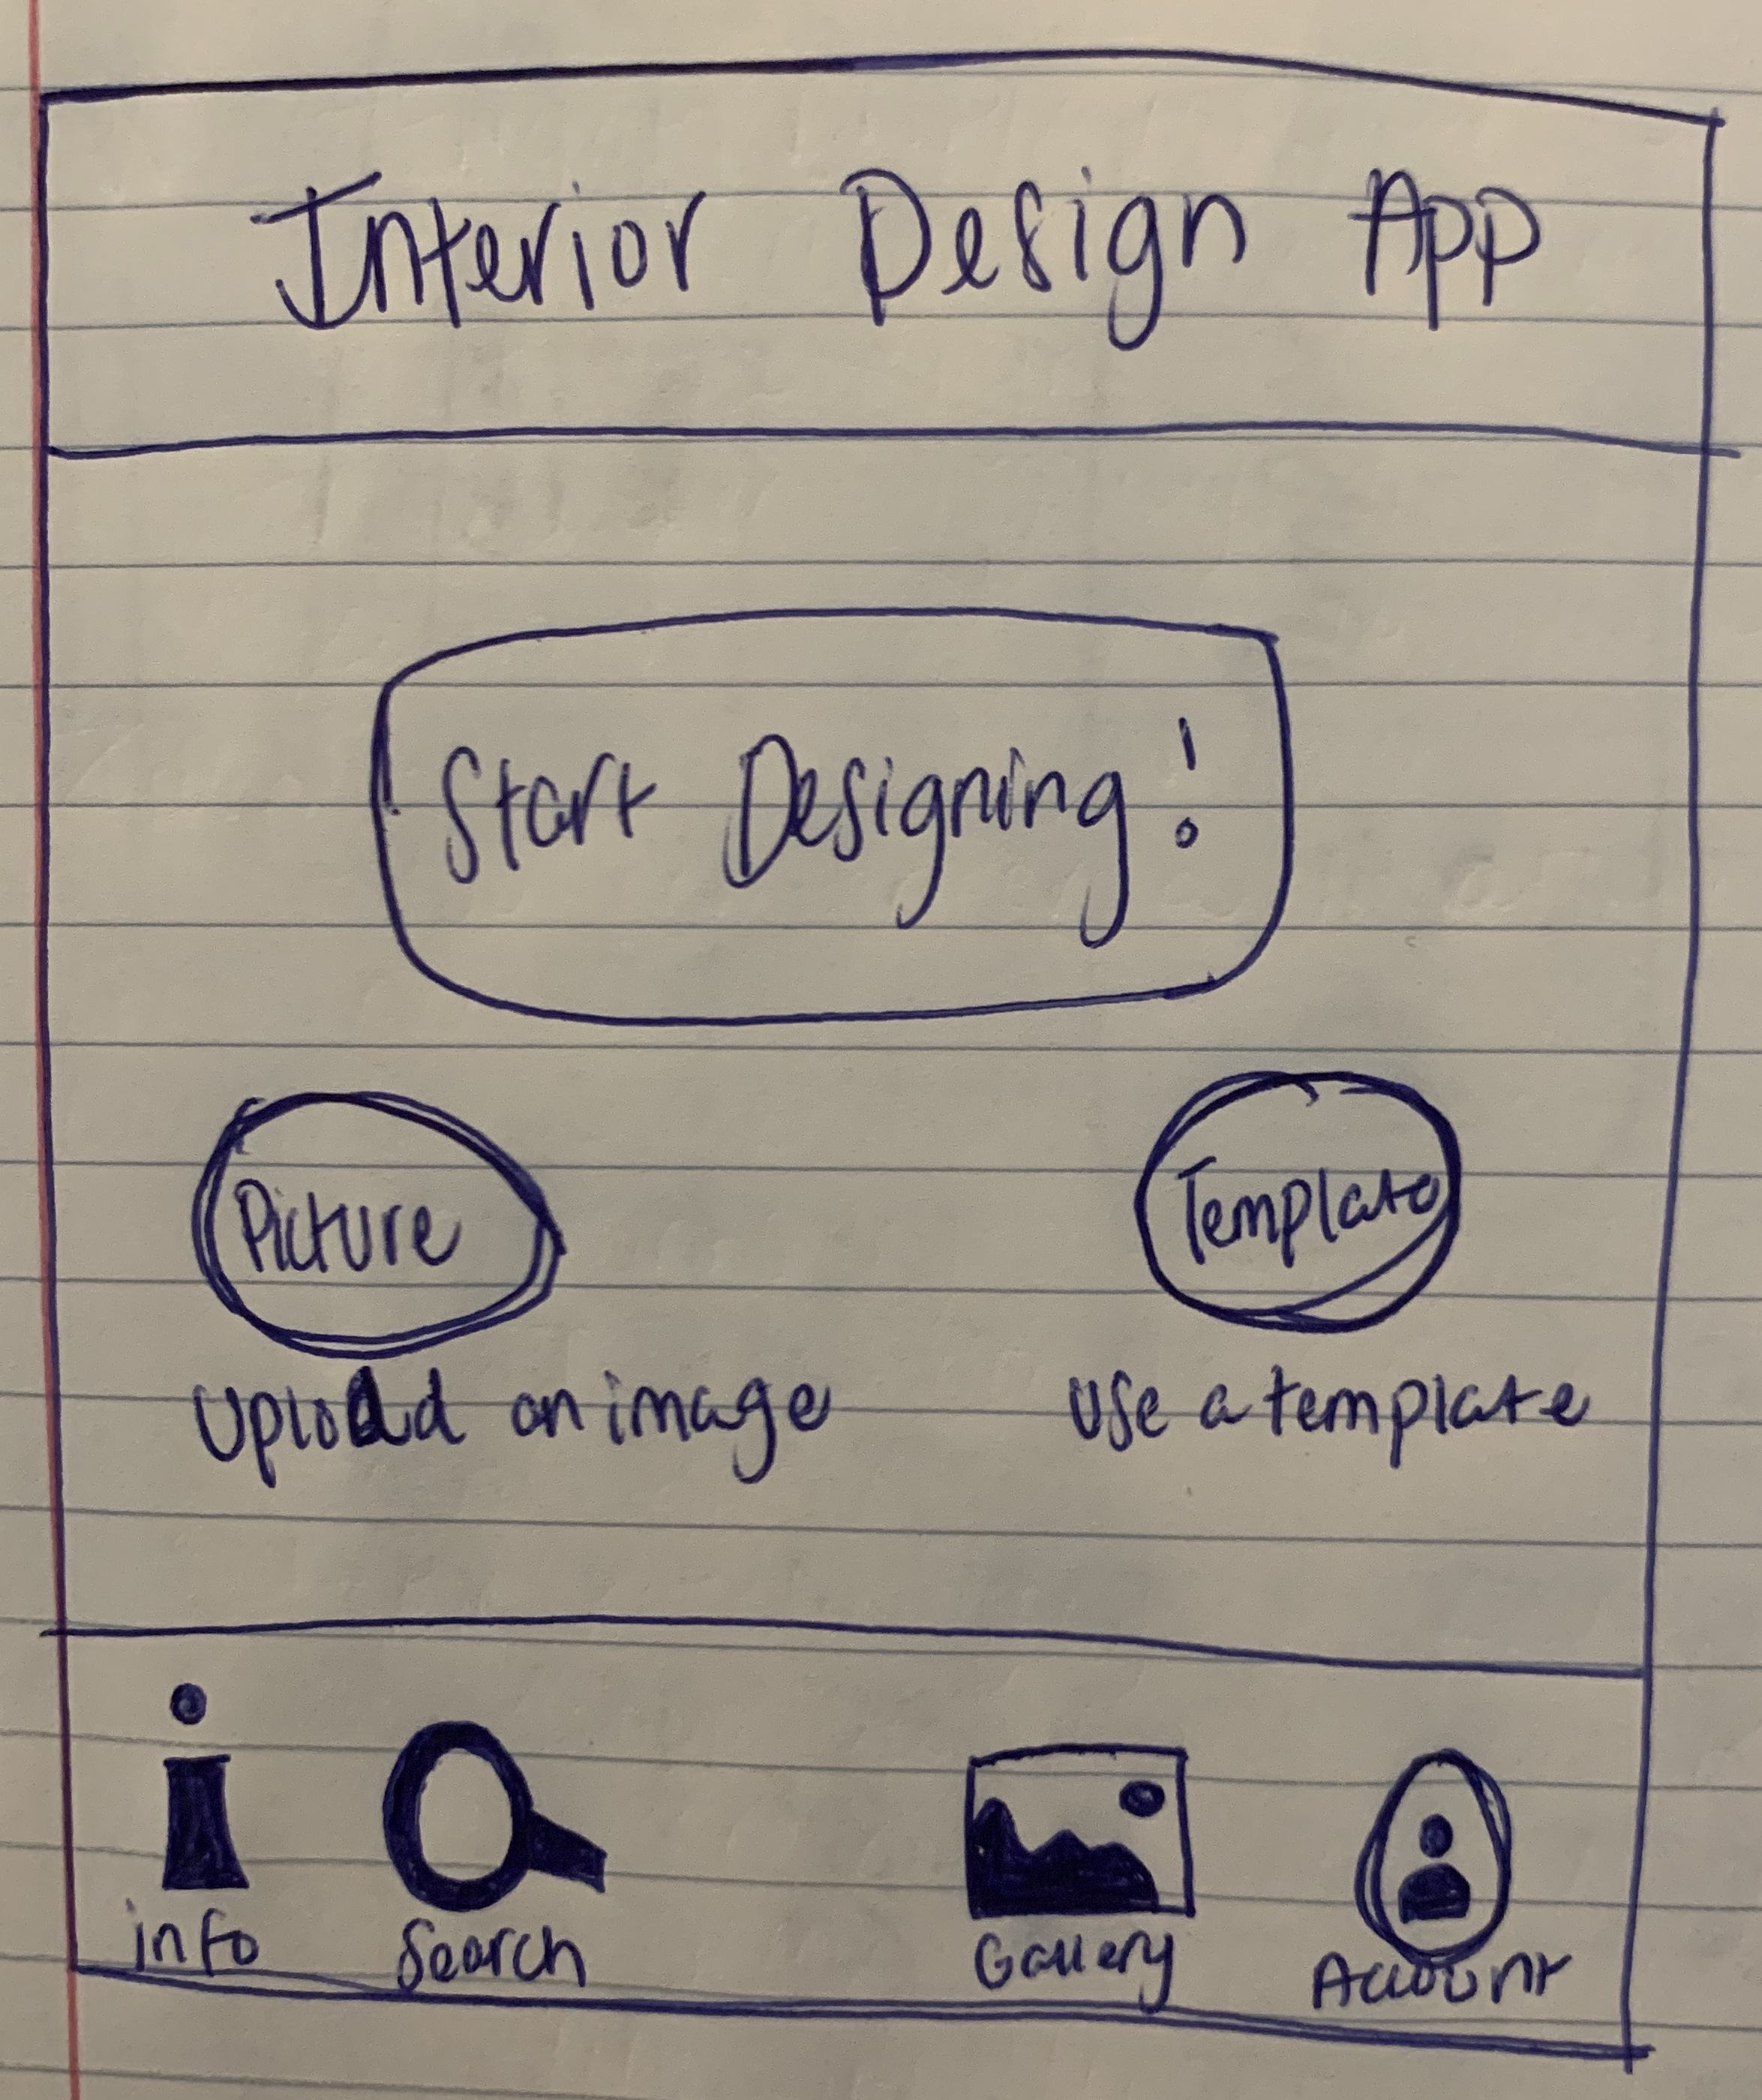 Interior Design App
Start Designing!
Picture
Template
Upload an image
Use a template
info
Search
Gallery
Account